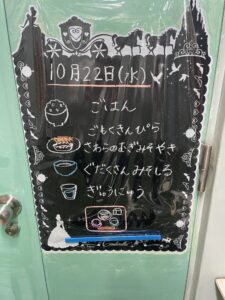 10月22日(水)
ごはん
ごもくきんぴら
さわらのむぎみそやき
ぐだくさんみそしる
ぎゅうにゅう